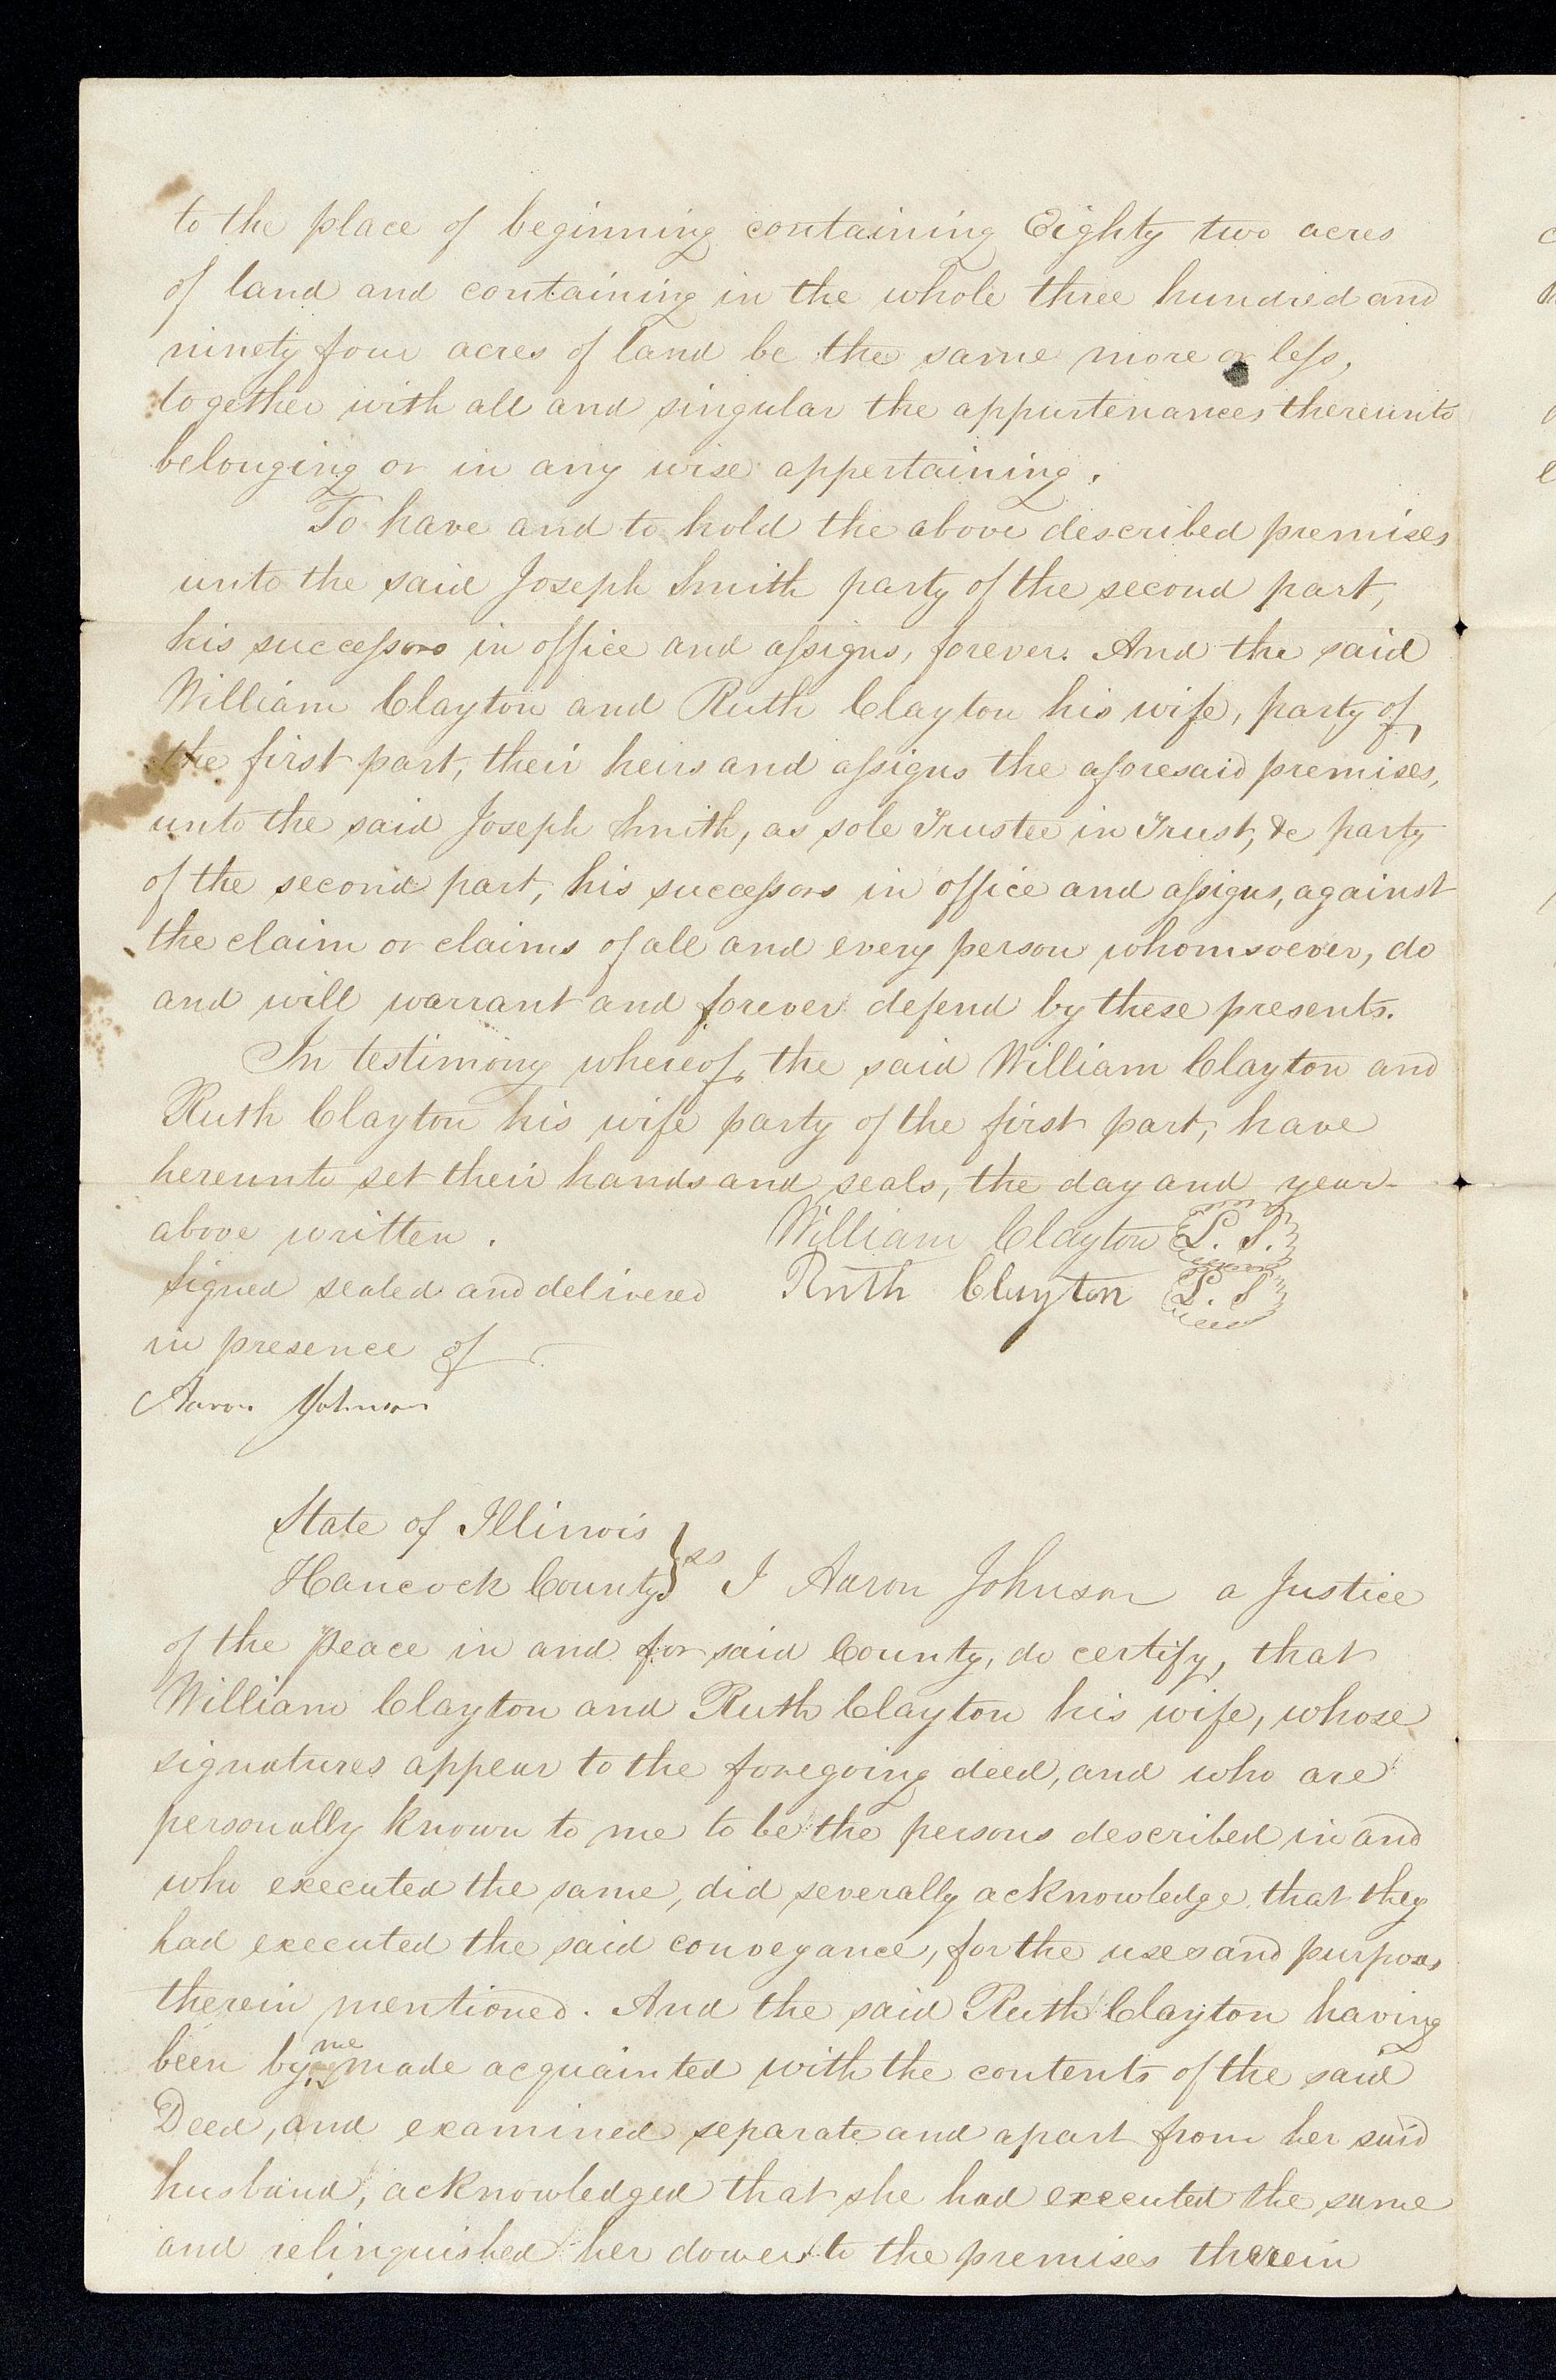 to the place of beginning containing Eighty two acres
of land and containing in the whole three hundred and
ninety four acres of land be the same more or less,
together with all and singular the appurtenances thereunto
belonging or in any wise appertaining.
To have and to hold the above described premises
unto the said Joseph Smith party of the second part,
his successors in office and assigns, forever. And the said
William Clayton and Ruth Clayton his wife, party of
the first part, their heirs and assigns the aforesaid premises,
unto the said Joseph Smith, as sole Trustee in Trust, &c party
of the second part, his successors in office and assigns, against
the claim or claims of all and every person whomsoever, do
and will warrant and forever defend by these presents.
In testimony whereof, the said William Clayton and
Ruth Clayton his wife party of the first part, have
hereunto set their hands and seals, the day and year
above written. William Clayton L. S.
Signed sealed and delivered Ruth Clayton L. S
in presence of
Aaron Johnson
State of Illinois
Hancock County } ss I Aaron Johnson a Justice
of the Peace in and for said County, do certify, that
William Clayton and Ruth Clayton his wife, whose
signatures appear to the foregoing deed, and who are
personally known to me to be the persons described in and
who executed the same, did severally acknowledge that they
had executed the said conveyance, for the uses and purposes
therein mentioned. And the said Ruth Clayton having
been by me made acquainted with the contents of the said
Deed, and examined separate and apart from her said
husband, acknowledged that she had executed the same
and relinquished her dower to the premises therein